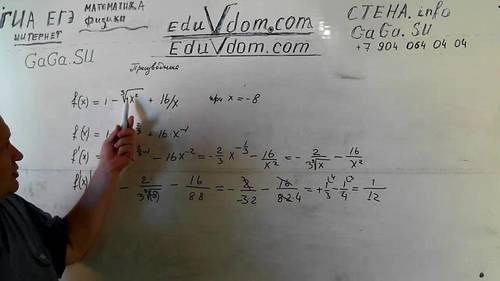 ГИА ЕГЭ МАТЕМАТИКА
физика
ИНТЕРНЕТ
GaGa.SU
eduVdom.com
EduVdom.com
СТЕНА.info
GaGa.SU
+7 904 064 04 04
Производные
f(x) = 1 - ∛x² + 16/x при x = -8
f(x) = 1 + 16·x⁻¹
f'(x) = - 16x⁻² = -2/3 x^(-1/3) - 16/x² = - 2/(3∛x) - 16/x²
f'(x) - 2/(3∛(-8)) - 16/(8·8) = - 2/(-3·2) - 16/(8·2·4) = + 1/3 - 1/4 = 1/12